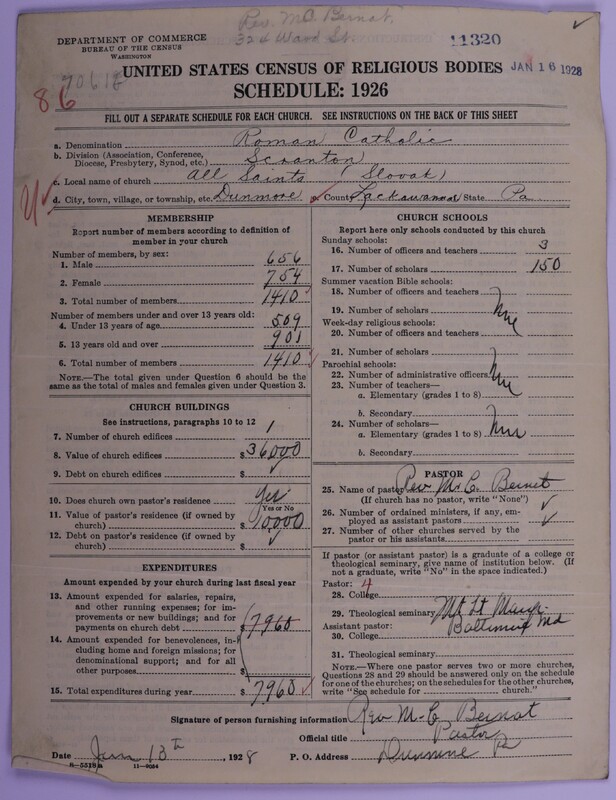 Rev. M.C. Bernat
32d Ward St.
DEPARTMENT OF COMMERCE
BUREAU OF THE CENSUS
WASHINGTON
11320
UNITED STATES CENSUS OF RELIGIOUS BODIES
JAN 16 1928
86
SCHEDULE: 1926
FILL OUT A SEPARATE SCHEDULE FOR EACH CHURCH. SEE INSTRUCTIONS ON THE BACK OF THIS SHEET
a. Denomination Roman Catholic
b. Division (Association, Conference, Diocese, Presbytery, Synod, etc.) Scranton
c. Local name of church All Saints (Slovak)
d. City, town, village, or township, etc. Dunmore e. County Lackawanna State Pa
MEMBERSHIP
Report number of members according to definition of member in your church
Number of members, by sex:
1. Male 656
2. Female 754
3. Total number of members 1410
Number of members under and over 13 years old:
4. Under 13 years of age 509
5. 13 years old and over 901
6. Total number of members 1410
NOTE.—The total given under Question 6 should be the same as the total of males and females given under Question 3.
CHURCH BUILDINGS
See instructions, paragraphs 10 to 12
7. Number of church edifices 1
8. Value of church edifices $36,000
9. Debt on church edifices $
10. Does church own pastor's residence Yes
Yes or No
11. Value of pastor's residence (if owned by church) $10000
12. Debt on pastor's residence (if owned by church) $
EXPENDITURES
Amount expended by your church during last fiscal year
13. Amount expended for salaries, repairs, and other running expenses; for improvements or new buildings; and for payments on church debt $7960
14. Amount expended for benevolences, including home and foreign missions; for denominational support; and for all other purposes $
15. Total expenditures during year $7960
CHURCH SCHOOLS
Report here only schools conducted by this church
Sunday schools:
16. Number of officers and teachers 3
17. Number of scholars 150
Summer vacation Bible schools:
18. Number of officers and teachers
19. Number of scholars
Week-day religious schools:
20. Number of officers and teachers
21. Number of scholars
Parochial schools:
22. Number of administrative officers
23. Number of teachers—
a. Elementary (grades 1 to 8)
b. Secondary
24. Number of scholars—
a. Elementary (grades 1 to 8)
b. Secondary
PASTOR
25. Name of pastor Rev M. C. Bernat
(If church has no pastor, write "None")
26. Number of ordained ministers, if any, employed as assistant pastors
27. Number of other churches served by the pastor or his assistants
If pastor (or assistant pastor) is a graduate of a college or theological seminary, give name of institution below. (If not a graduate, write "No" in the space indicated.)
Pastor: 4
28. College
29. Theological seminary Mt St
Baltimore Md
Assistant pastor:
30. College
31. Theological seminary
NOTE.—Where one pastor serves two or more churches, Questions 28 and 29 should be answered only on the schedule for one of the churches; on the schedules for the other churches, write "See schedule for church."
Signature of person furnishing information Rev M C Bernat
Official title Pastor
Date 13th, 1928 P. O. Address
8—5518a 11—9024